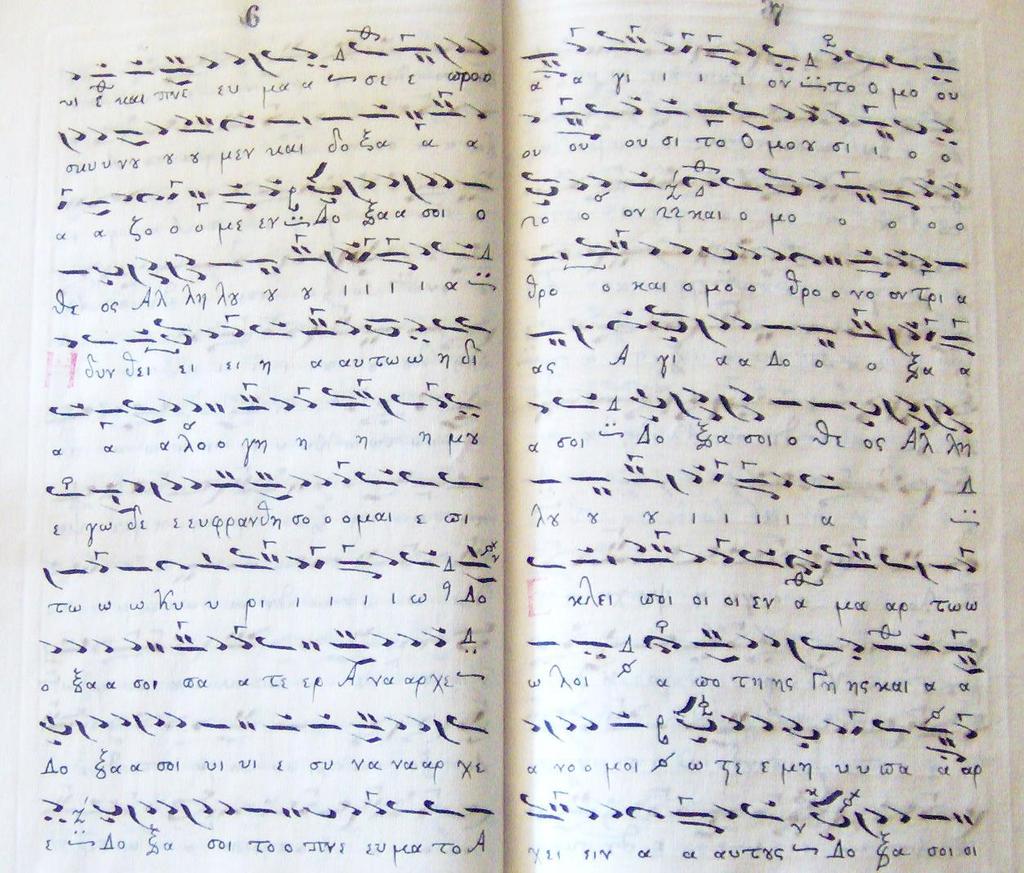 6
υι ε και πνε ευ μα α σε ε προο
σκυυνγ γ γ μεν και δο ξα α α
α α ζο ο ο με εν Δο ξαα σοι ο
θε ος Αλ λη λγ γ γ ι ι ι ι α
δυν θει ει ει η α αυ τω ω η δι
α α α λο ο γη η η η μγ
ε γω δε ε ευφρανθη σο ο ο μαι ε πι
τω ω ω Κυ υ ρι ι ι ι ι ω Δο
ο ξαα α σοι πα α τε ερ Α να αρ χε
Δο ξαα α σοι υι υι ε συ να να αρ χε
ε Δο ξα σοι το ο πνε ευ μα το Α
7
α α γι ι ι ι ον το ο μο ου
ου ου ου σι το Ο μο γ σι ι ο ο
το ο ον και ο μο ο ο ο ο
θρο ο και ο μο ο θρο ο νο ον τρι α
ας Α γι α α Δο ο ο ξα α
α σοι Δο ξα σοι ο θε ος Αλ λη
λγ γ γ ι ι ι ι α
κλει ποι οι οι εν α μα αρ τωω
ω λοι α πο τη ης Γη ης και α α
α νο ο μοι ω τε ε μη υ υ πα α αρ
χει ειν α α αυ τγς Δο ξα σοι οι